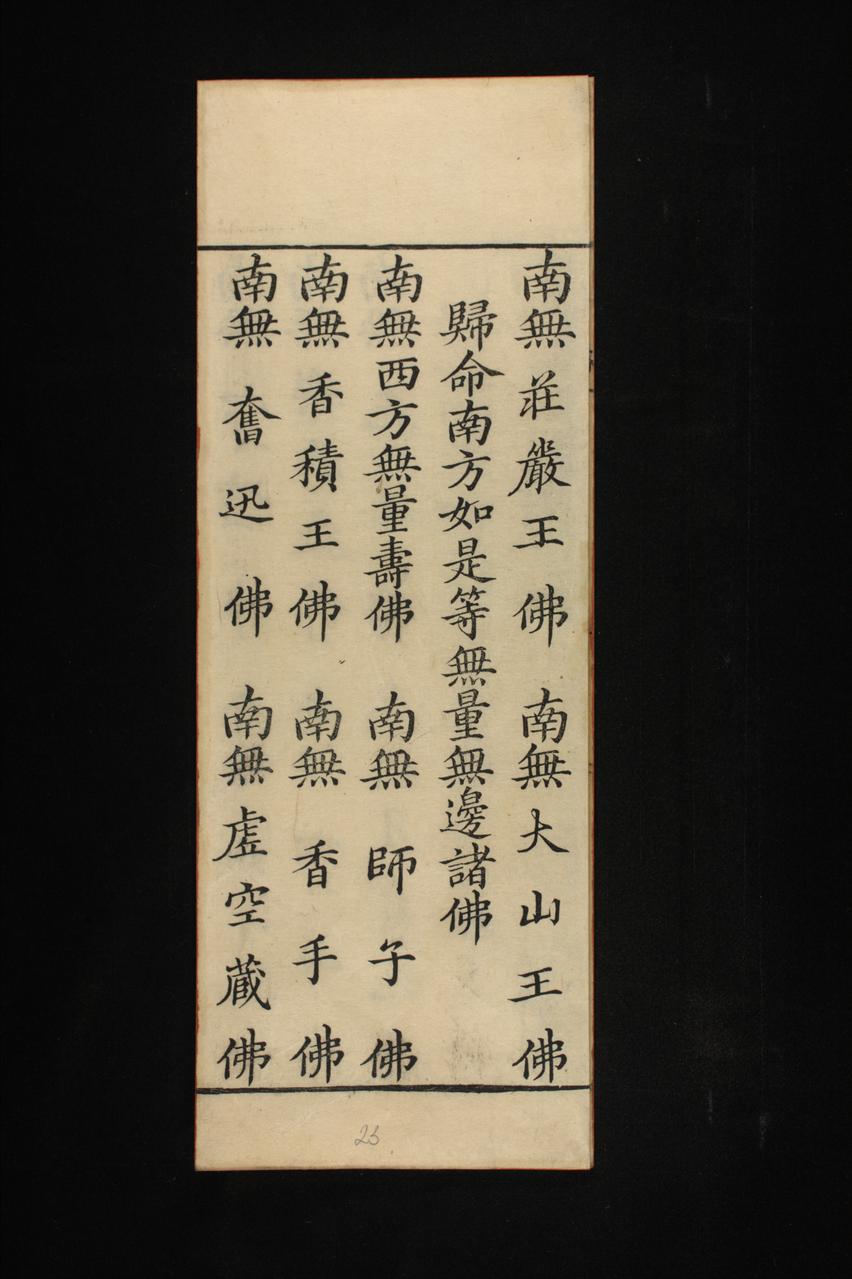 南無莊嚴王佛　南無大山王佛
歸命南方如是等無量無邊諸佛
南無西方無量壽佛　南無師子佛
南無香積王佛　南無香手佛
南無奮迅佛　南無虛空藏佛
23